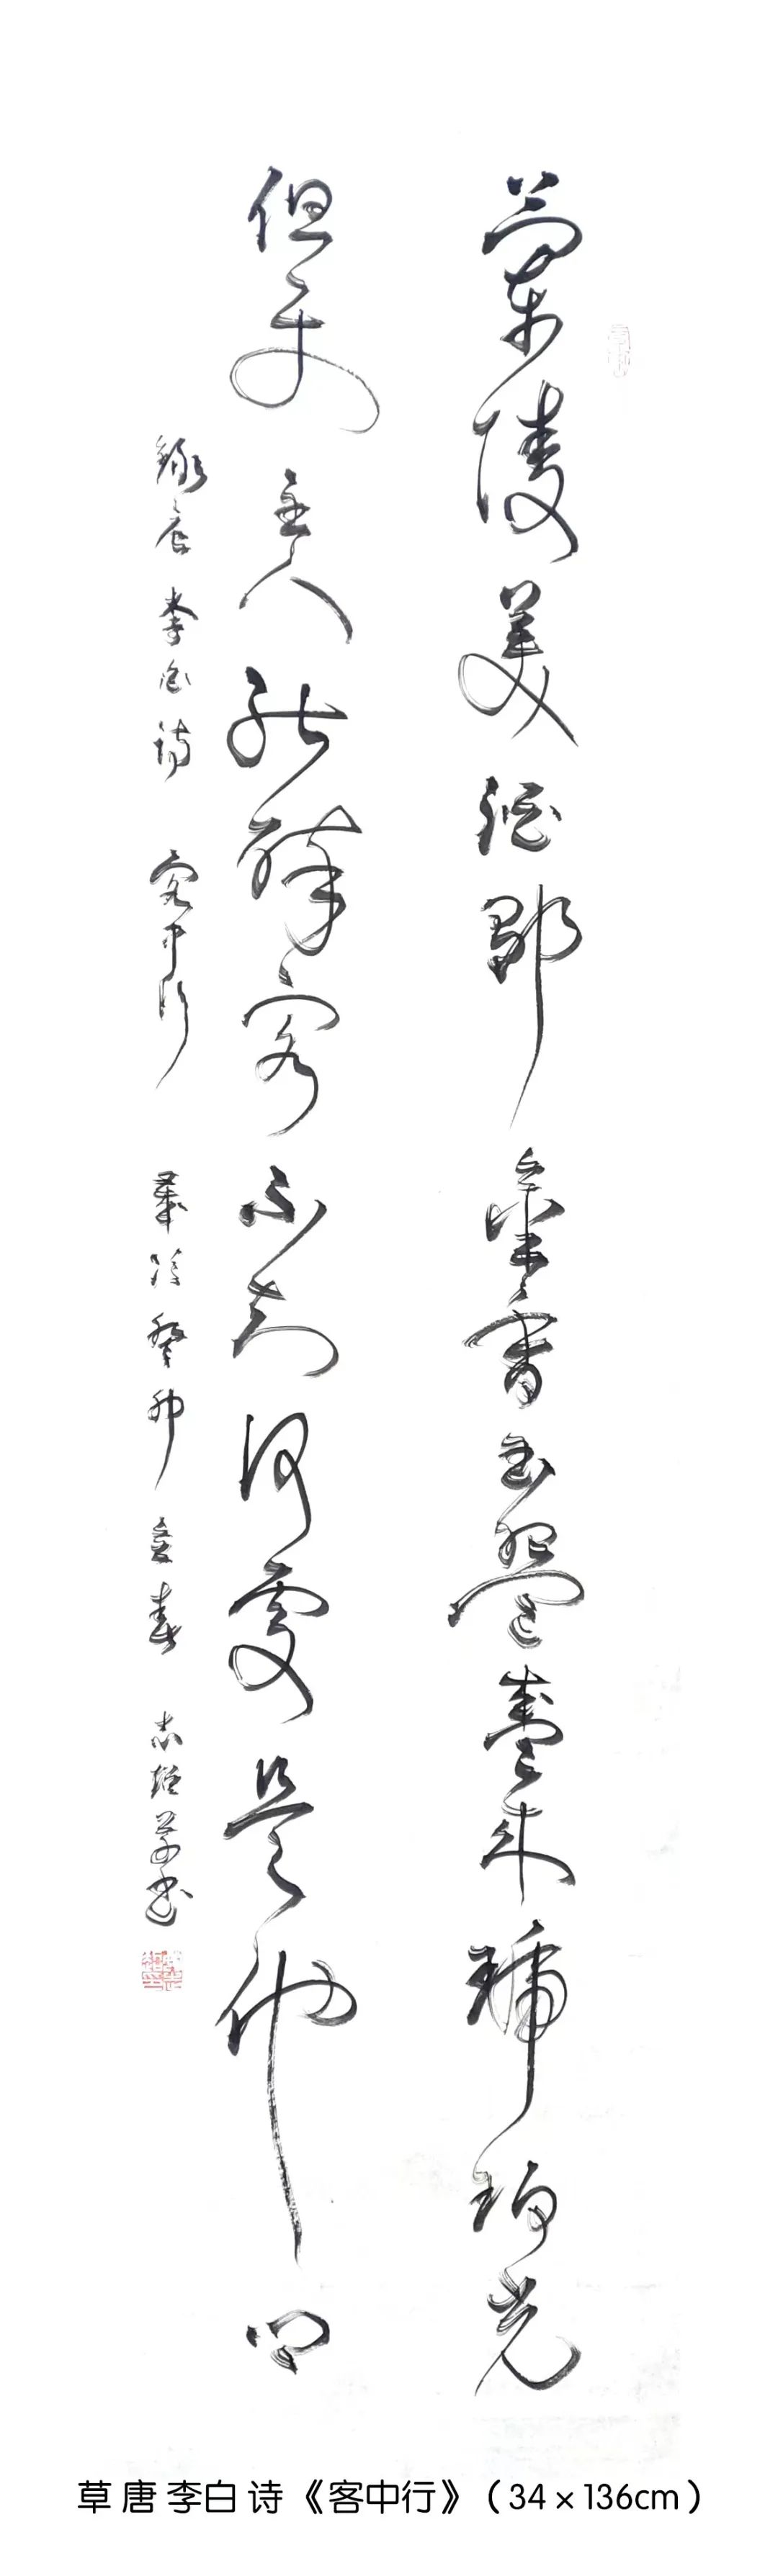 蘭陵美酒郁金香玉盌盛來琥珀光
但使主人能醉客不知何處是他鄉
錄唐李白詩 客中行 歲次癸卯 春 志 草書
草 唐 李白 诗《客中行》（34×136cm）